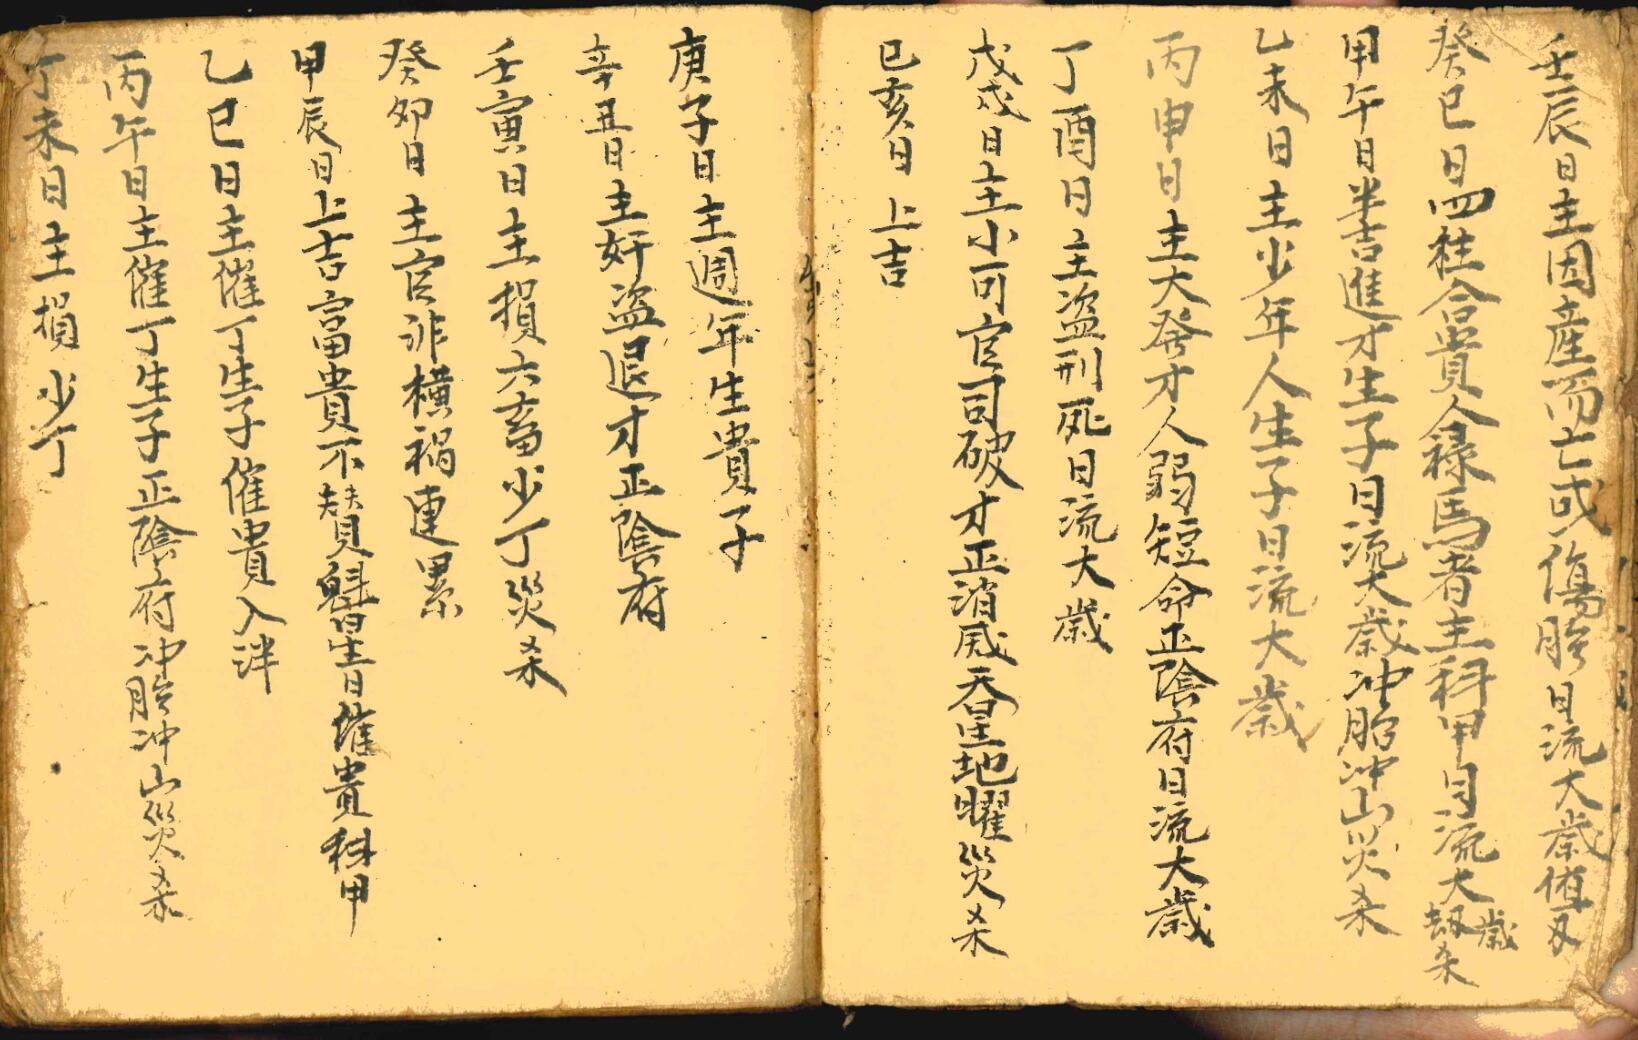 壬辰日主因産而亡或傷胎日流大歲值刃
癸巳日四柱合貴人祿馬者主科甲日流大歲刼杀
甲午日半吉進才生子日流大歲冲胎冲山災杀
乙未日主少年人生子日流大歲
丙申日主大發才人弱短命正陰府日流大歲
丁酉日主盗刑死日流大歲
戊戌日主小可官司破才正消滅吞星地曜災杀
已亥日上吉
庚子日主週年生貴子
辛丑日主奸盗退才正陰府
壬寅日主損六畜少丁災杀
癸卯日主官非横禍連累
甲辰日上吉富貴不替魁星日催貴科甲
乙巳日主催丁生子催貴入泮
丙午日主催丁生子正陰府冲胎冲山災杀
丁未日主損少丁